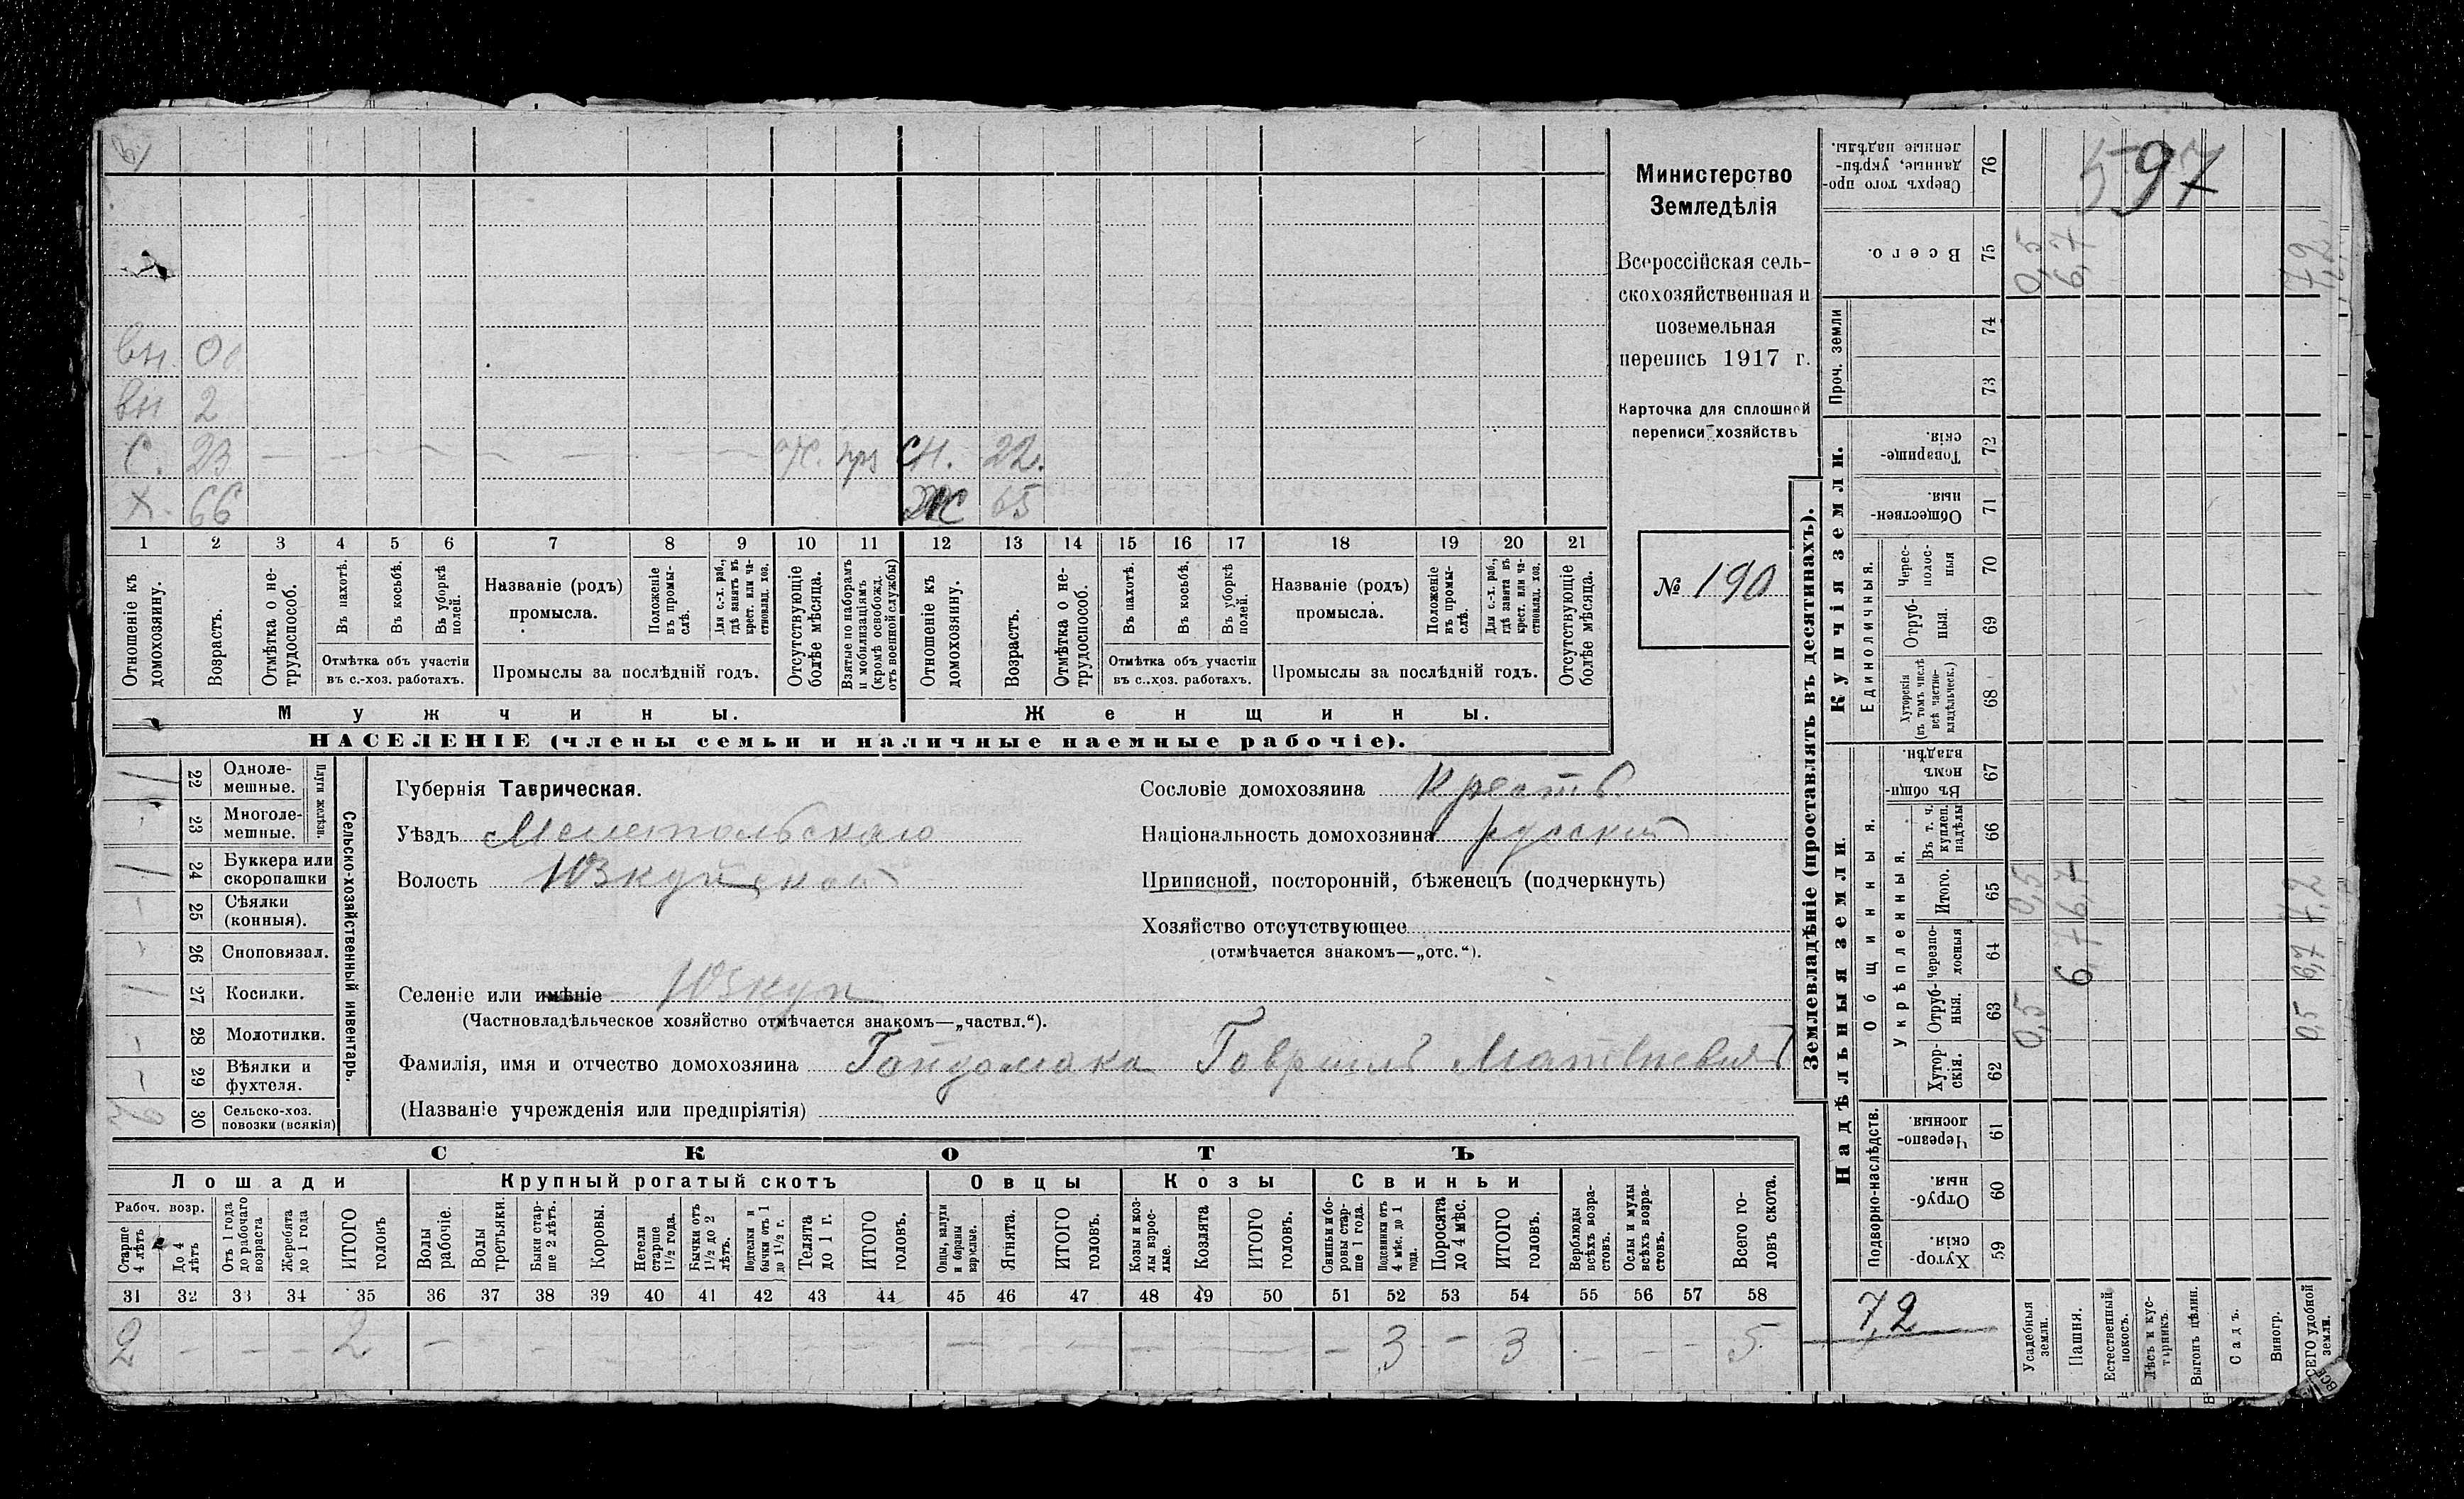 597
вн. 0
вн 2
С. 23 — — — — — — — сн. 22.
Х. 66 ж 65
1 2 3 4 5 6 7 8 9 10 11 12 13 14 15 16 17 18 19 20 21
Отношеніе къ домохозяину.
Возрастъ.
Отмѣтка о нетрудоспособ.
Въ пахотѣ.
Въ косьбѣ.
Въ уборкѣ полей.
Отмѣтка объ участіи въ с.-хоз. работахъ.
Названіе (родъ) промысла.
Положеніе въ промыслѣ.
Для с.-х. раб., гдѣ занятъ въ крест. или частновлад. хоз.
Промыслы за послѣдній годъ.
Отсутствующіе болѣе мѣсяца.
Взятые по наборамъ и мобилизаціямъ (кромѣ освобожд. отъ военной службы)
Отношеніе къ домохозяину.
Возрастъ.
Отмѣтка о нетрудоспособ.
Въ пахотѣ.
Въ косьбѣ.
Въ уборкѣ полей.
Отмѣтка объ участіи въ с.-хоз. работахъ.
Названіе (родъ) промысла.
Положеніе въ промыслѣ.
Для с.-х. раб., гдѣ занятъ въ крест. или частновлад. хоз.
Промыслы за послѣдній годъ.
Отсутствующіе болѣе мѣсяца.
Мужчины. Женщины.
НАСЕЛЕНІЕ (члены семьи и наличные наемные рабочіе).
Министерство
Земледѣлія
Всероссійская сель-
скохозяйственная и
поземельная
перепись 1917 г.
Карточка для сплошной
переписи хозяйствъ
№ 190
Сельско-хозяйственный инвентарь.
Плуги желѣзн.
1 22 Одноле-мешные.
- 23 Многоле-мешные.
1 24 Буккера или скоропашки
- 25 Сѣялки (конныя).
- 26 Сноповязал.
1 27 Косилки.
- 28 Молотилки.
- 29 Вѣялки и фухтеля.
30 Сельско-хоз. повозки (всякія)
Губернія Таврическая.
Уѣздъ Мелитопольскаго
Волость Юзкуйской
Селеніе или имѣніе Юзкуи
(Частновладѣльческое хозяйство отмѣчается знакомъ—„частвл.“).
Фамилія, имя и отчество домохозяина Гайдомака Гавриилъ Матвѣевичъ
(Названіе учрежденія или предпріятія)
Сословіе домохозяина Крестъ.
Національность домохозяина русский
Приписной, посторонній, бѣженецъ (подчеркнуть)
Хозяйство отсутствующее
(отмѣчается знакомъ—„отс.“).
СКОТЪ
Лошади Крупный рогатый скотъ Овцы Козы Свиньи
Рабоч. возр.
Старше 4 лѣтъ
До 4 лѣтъ
Отъ 1 года до рабочаго возраста
Жеребята до 1 года
ИТОГО головъ
Волы рабочіе.
Волы третьяки.
Быки старше 2 лѣтъ.
Коровы.
Нетели старше 1½ года.
Бычки отъ 1½ до 2 лѣтъ.
Подтелки и бычки отъ 1 до 1½ г.
Телята до 1 г.
ИТОГО головъ.
Овцы, валухи и бараны взрослые.
Ягнята.
ИТОГО головъ.
Козы и козлы взрослые.
Козлята
ИТОГО головъ.
Свиньи и боровы старше 1 года.
Подсвинки отъ 4 мѣс. до 1 года.
Поросята до 4 мѣс.
ИТОГО головъ.
Верблюды всѣхъ возрастовъ.
Ослы и мулы всѣхъ возрастовъ.
Всего головъ скота.
31 32 33 34 35 36 37 38 39 40 41 42 43 44 45 46 47 48 49 50 51 52 53 54 55 56 57 58
2 - - - 2 - - - - - - 3 - 3 - - - 5
Землевладѣніе (проставлять въ десятинахъ).
Надѣльныя земли. Купчія земли.
Подворно-наслѣдств.
Общинныя.
Укрѣпленныя.
Единоличныя.
Проч. земли
Хуторскія. 59
Отрубныя. 60
Черезполосныя 61
Хуторскія. 62
Отрубныя. 63 0,5 0,5
Черезполосныя 64 6,7 6,7
Итого. 65 0,5 6,7 7,2
Въ т. ч. куплен. надѣлы 66
Въ общинномъ владѣн. 67
Хуторскія (въ томъ числѣ всѣ частновладѣльческ.) 68
Отрубныя. 69
Чересполосныя 70
Общественныя. 71
Товарищескія. 72
73
74
Всего. 75 0,5 6,7 7,2
Сверхъ того проданные, укрѣпленные надѣлы. 76
7,2
Усадебныя земли.
Пашня.
Естественный покосъ.
Лѣсъ и кустарникъ.
Выгонъ цѣлин.
Садъ.
Виногр.
ВСЕГО удобной земли.